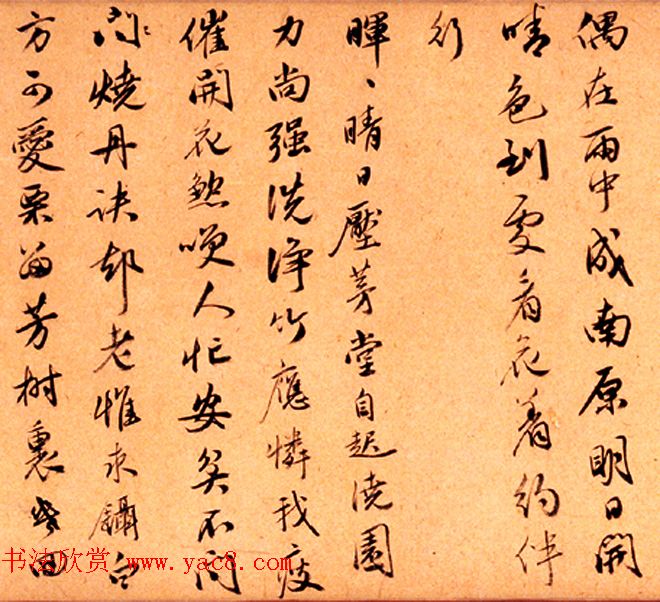 偶在雨中成南原明日開
晴色到處看花着約伴
行
暉〻晴日壓茅堂自起澆園
力尚强洗淨竹應憐我疲
催開花煞咲人忙安不問
燒丹訣却老惟求鑷白
方可愛栗留芳樹裏
书法欣赏 www.yac8.com